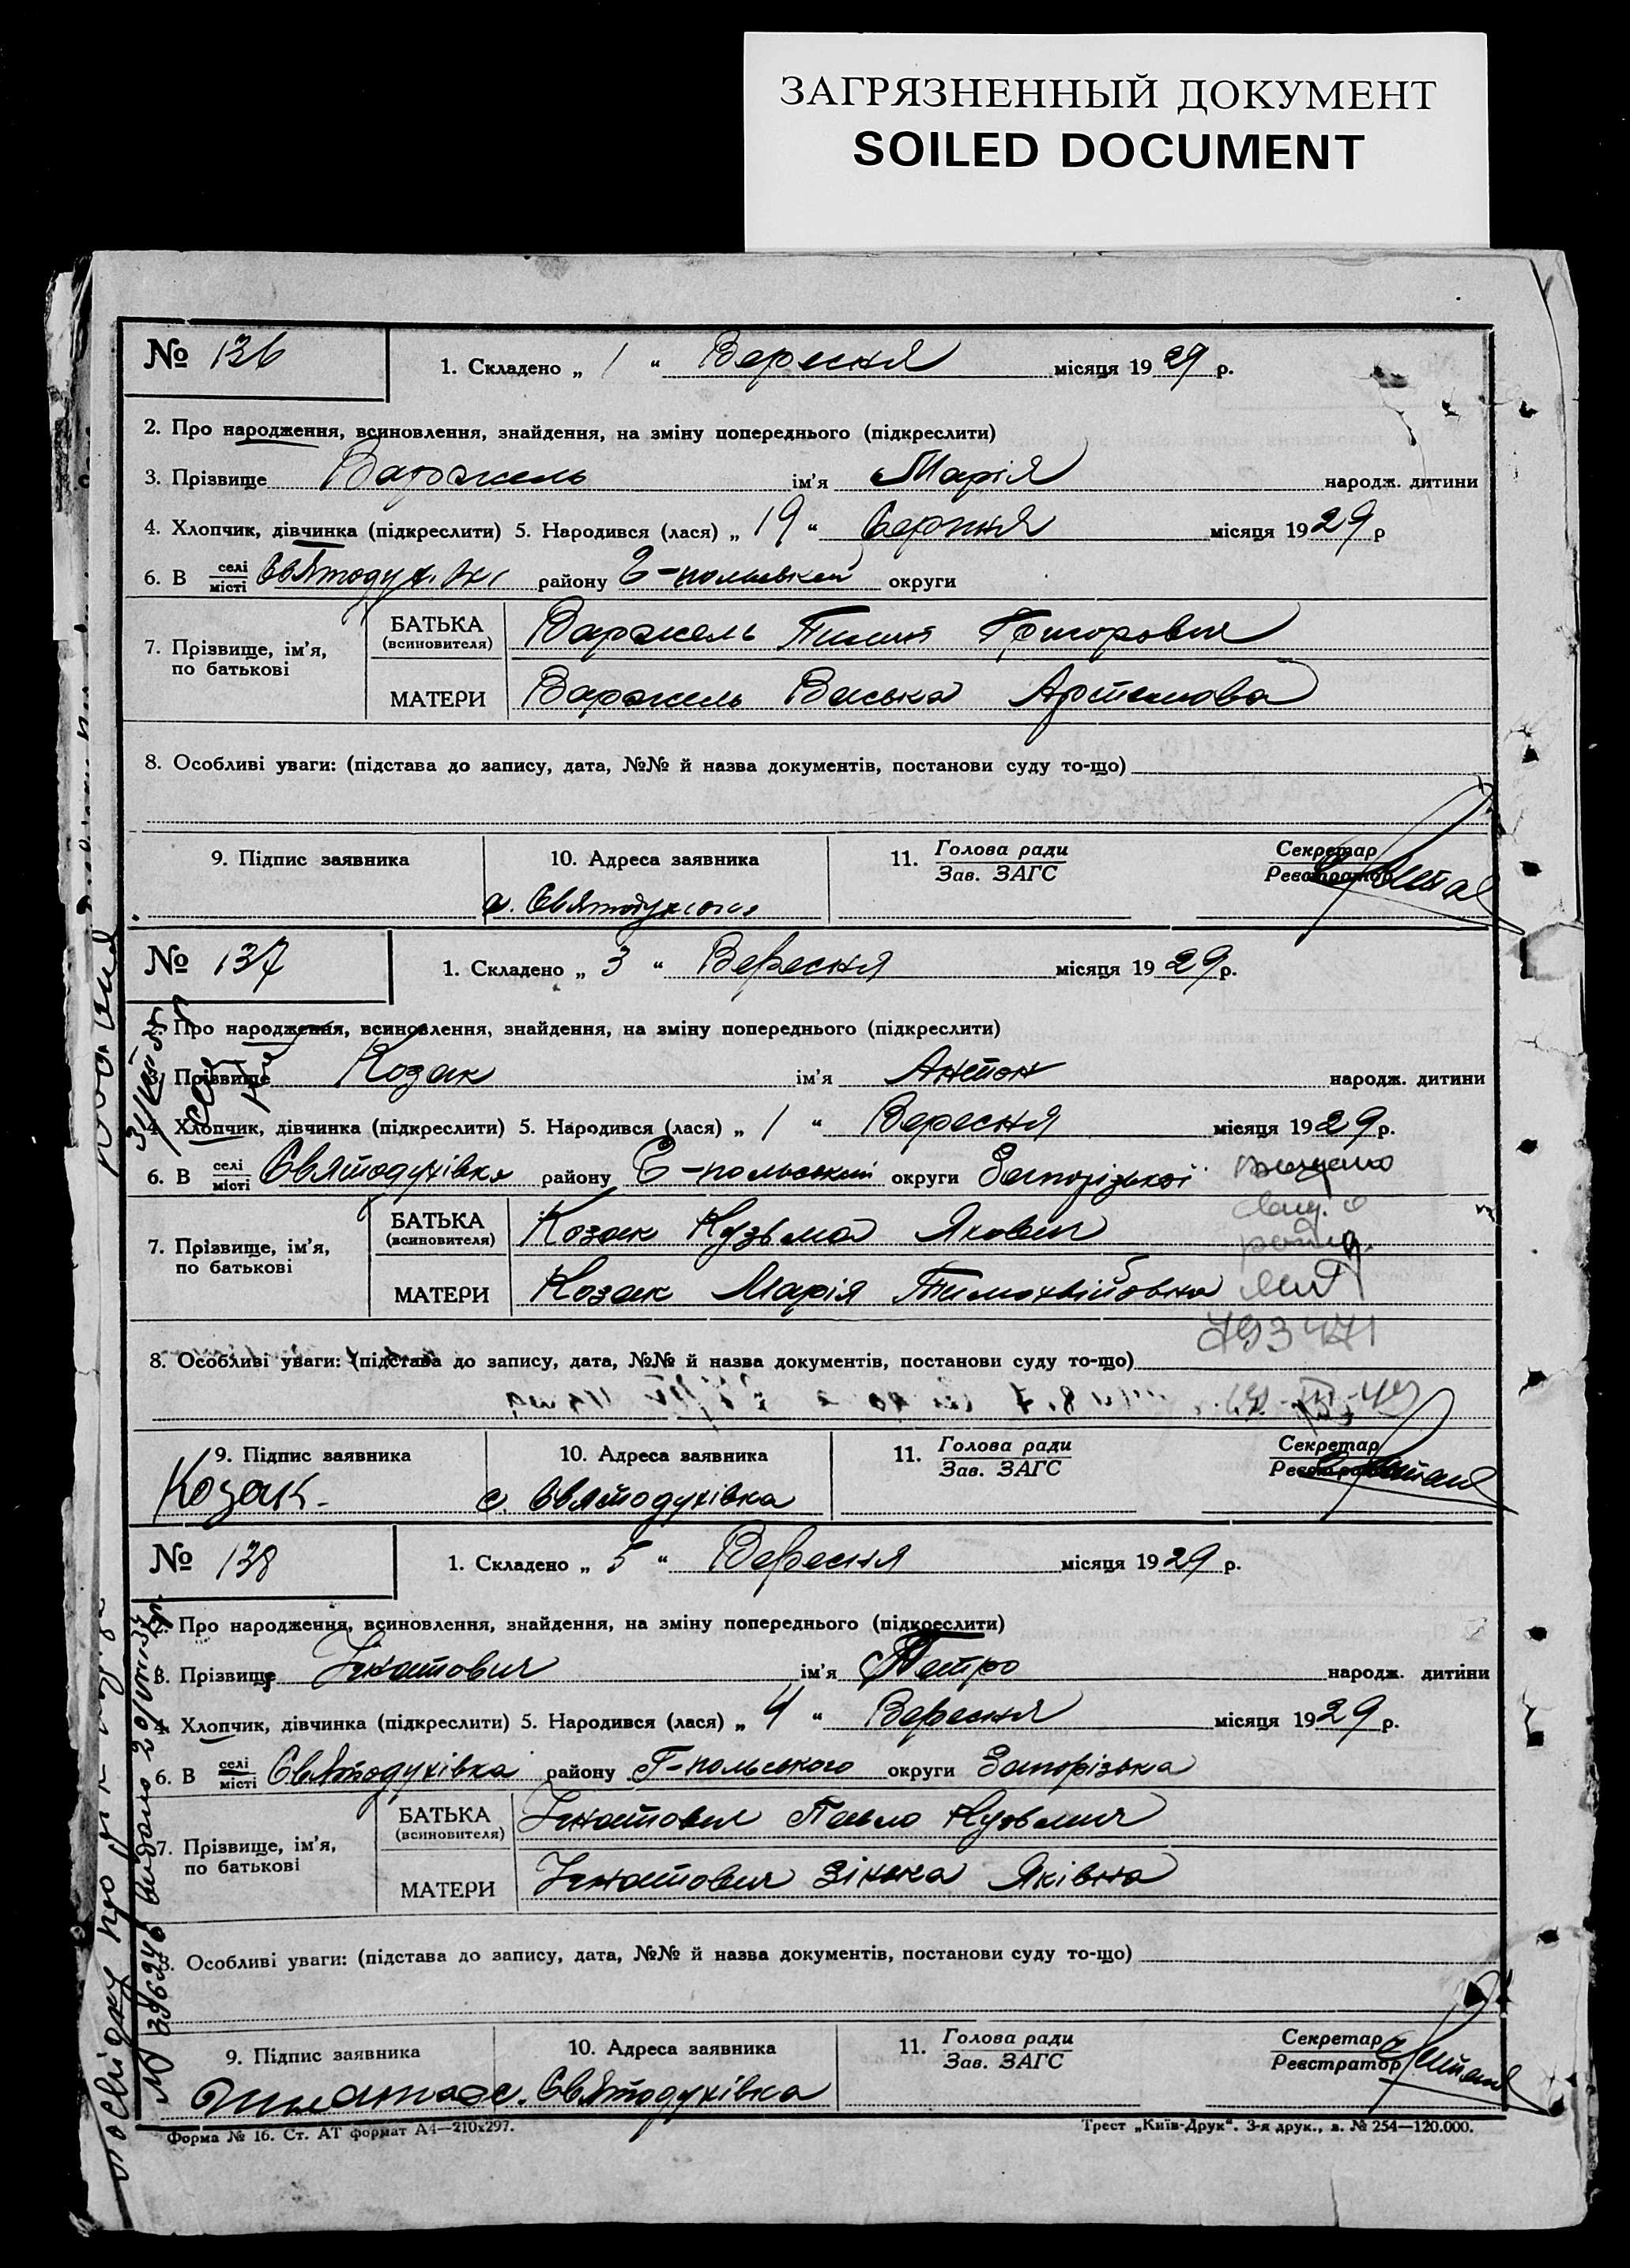 ЗАГРЯЗНЕННЫЙ ДОКУМЕНТ
SOILED DOCUMENT
№ 136
1. Складено „ 1 “ Вересня місяця 1929 р.
2. Про народження, всиновлення, знайдення, на зміну попереднього (підкреслити)
3. Прізвище Варжель ім'я Марія народж. дитини
4. Хлопчик, дівчинка (підкреслити) 5. Народився (лася) „ 19 “ Серпня місяця 1929 р
6. В селі місті району округи
7. Прізвище, ім'я, по батькові
БАТЬКА (всиновителя) Варжель Пилип Григорович
МАТЕРИ Варжель Васька Артемова
8. Особливі уваги: (підстава до запису, дата, №№ й назва документів, постанови суду то-що)
9. Підпис заявника
10. Адреса заявника
11. Голова ради Зав. ЗАГС
Секретар Реєстратор
с.
№ 137
1. Складено „ 3 “ Вересня місяця 1929 р.
Про народження, всиновлення, знайдення, на зміну попереднього (підкреслити)
3. Прізвище Козак ім'я Антон народж. дитини
4. Хлопчик, дівчинка (підкреслити) 5. Народився (лася) „ 1 “ Вересня місяця 1929 р.
6. В селі місті Святодухівка району округи Запорізької
7. Прізвище, ім'я, по батькові
БАТЬКА (всиновителя) Козак Кузьма Якович
МАТЕРИ Козак Марія Тимохвійовна
793471
8. Особливі уваги: (підстава до запису, дата, №№ й назва документів, постанови суду то-що)
9. Підпис заявника
10. Адреса заявника
11. Голова ради Зав. ЗАГС
Секретар Реєстратор
Козак
с. Святодухівка
№ 138
1. Складено „ 5 “ Вересня місяця 1929 р.
Про народження, всиновлення, знайдення, на зміну попереднього (підкреслити)
3. Прізвище Ігнатович ім'я Петро народж. дитини
4. Хлопчик, дівчинка (підкреслити) 5. Народився (лася) „ 4 “ Вересня місяця 1929 р.
6. В селі місті Святодухівка району Г-польського округи Запорізька
7. Прізвище, ім'я, по батькові
БАТЬКА (всиновителя) Ігнатович Павло Кузьмич
МАТЕРИ Ігнатович Зінька Яківна
8. Особливі уваги: (підстава до запису, дата, №№ й назва документів, постанови суду то-що)
9. Підпис заявника
10. Адреса заявника
11. Голова ради Зав. ЗАГС
Секретар Реєстратор
с. Святодухівка
Форма № 16. Ст. АТ формат А4—210х297.
Трест „Київ-Друк“. 3-я друк., з. № 254—120.000.